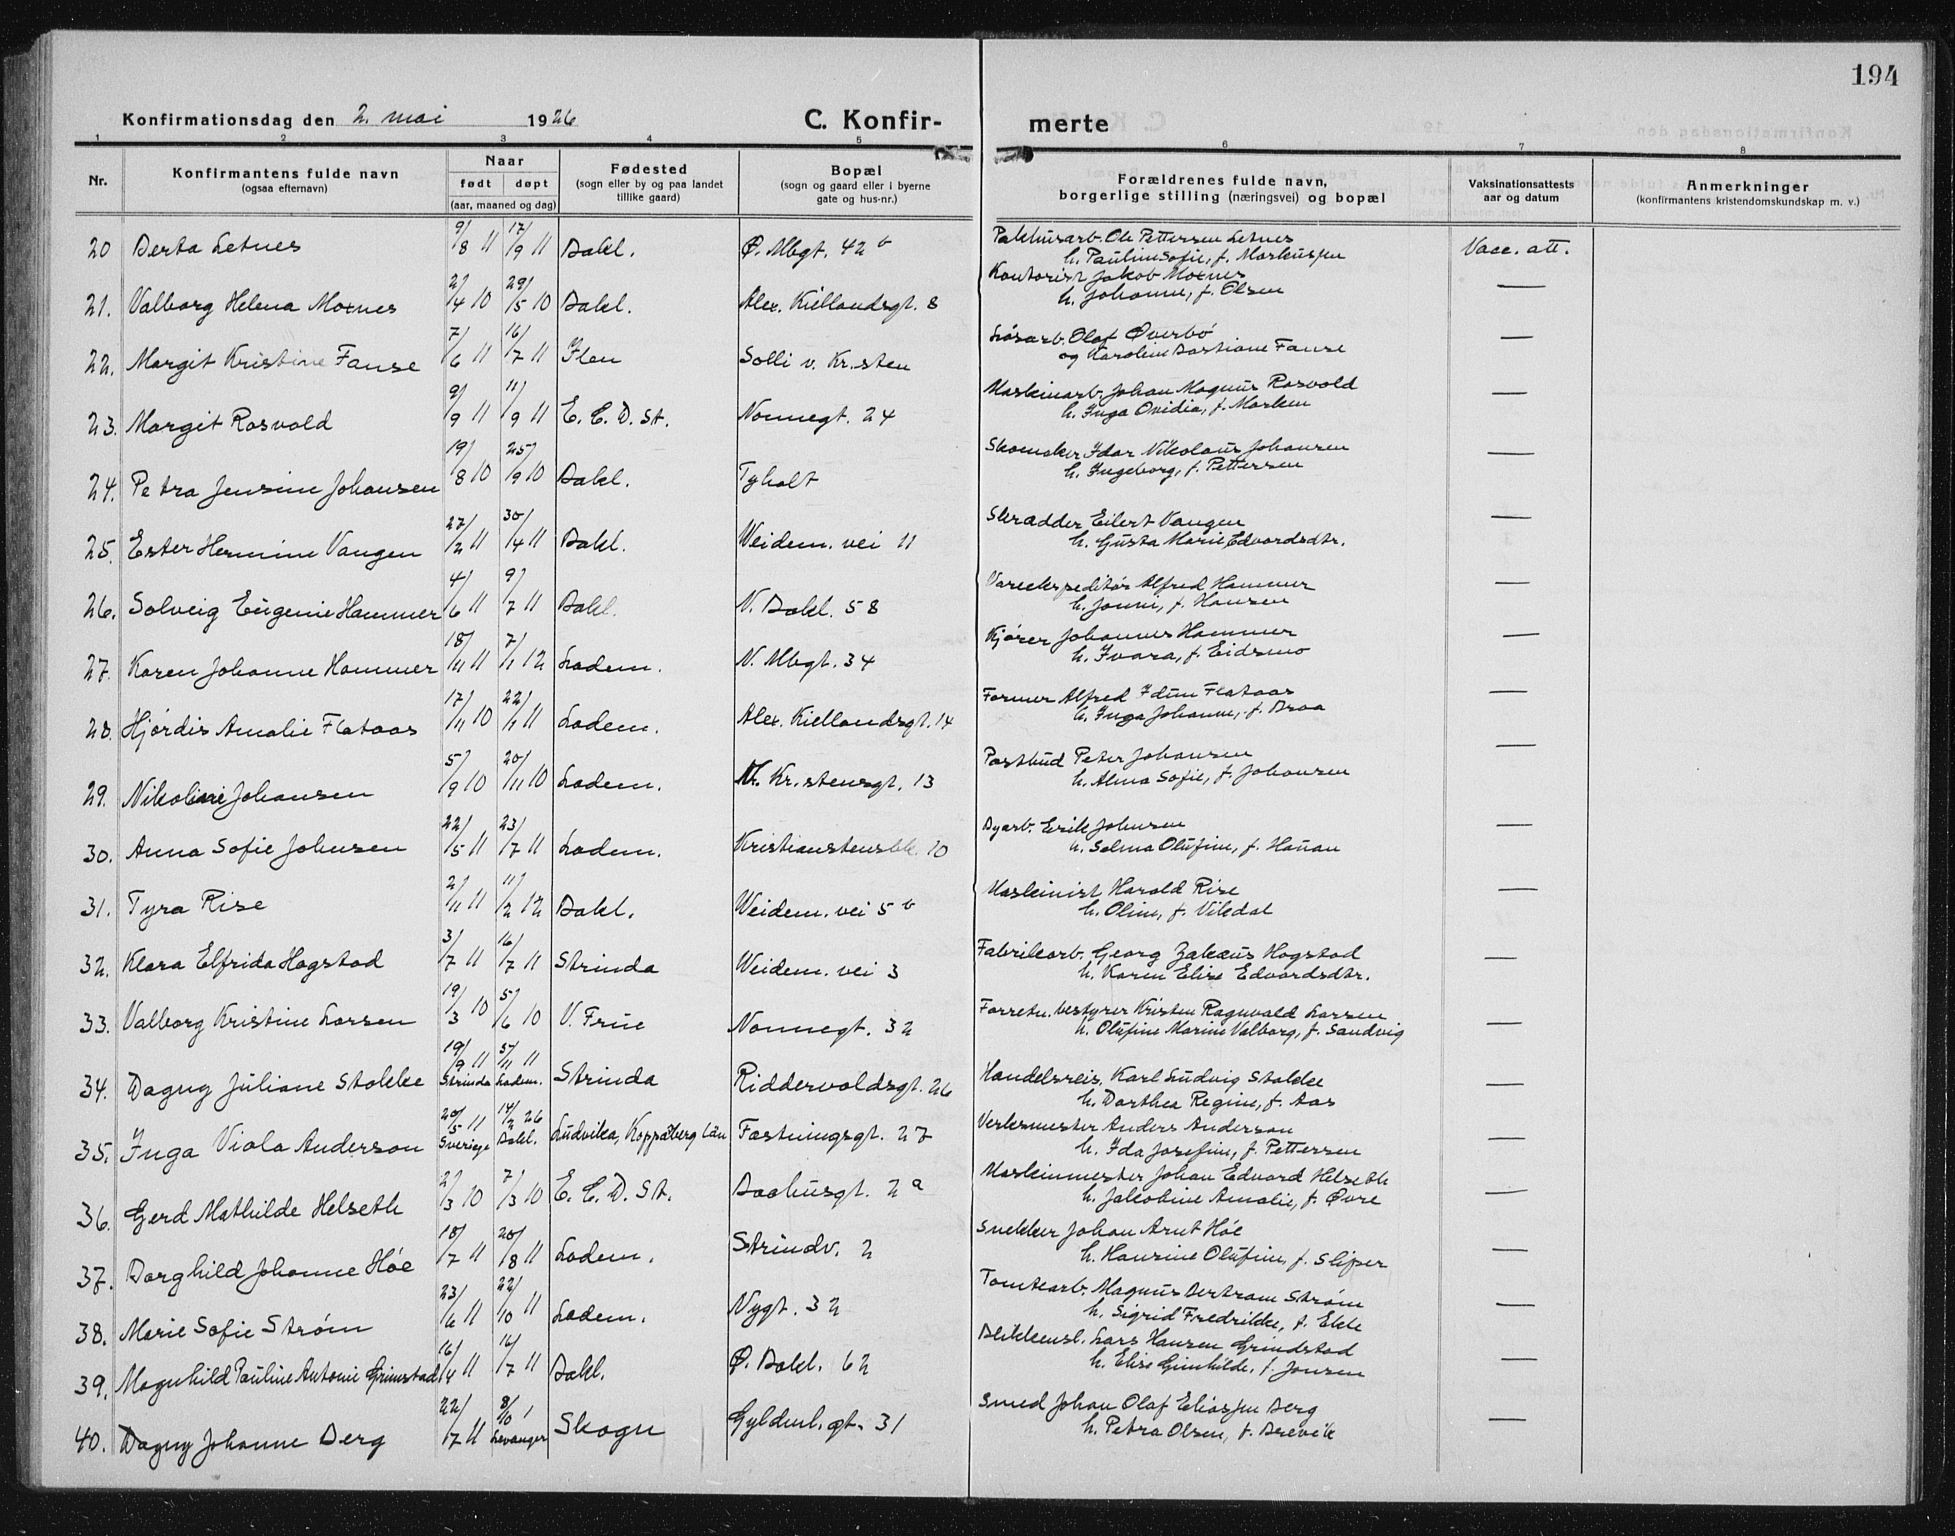 194
Konfirmationsdag den 2. mai 1926 C. Konfir- merte
1 2 3 4 5 6 7 8
Nr. Konfirmantens fulde navn (ogsaa efternavn) Naar født døpt (aar, maaned og dag) Fødested (sogn eller by og paa landet tillike gaard) Bopæl (sogn og gaard eller i byerne gate og hus-nr.) Forældrenes fulde navn, borgerlige stilling (næringsvei) og bopæl Vaksinationsattests aar og datum Anmerkninger (konfirmantens kristendomskundskap m. v.)
20 Berta Letnes 9/8 11 17/9 11 Bakl. Ø. Mbgt. 42 b Pakhusarb. Ole Pettersen Letnes Vacc. att.
h. Pauline Sofie, f. Markussen
21. Valborg Helena Moxnes 2/4 10 29/5 10 Bakl. Alex. Kiellandsgt. 8 Kontorist Jakob Moxnes —
h. Johanne, f. Olsen
22. Margit Kristine Fanse 7/6 11 16/7 11 Ilen Solli v. Kr.sten Løsarb. Olaf Øverbø —
og Karoline Bastiane Fanse
23. Margit Rosvold 9/9 11 11/9 11 E. C. D. St. Nonnegt. 24 Maskinarb. Johan Magnus Rosvold —
h. Inga Ovidia, f. Morken
24. Petra Jensine Johansen 19/8 10 25/9 10 Bakl. Tyholt Skomaker Idar Nikolaus Johansen —
h. Ingeborg, f. Pettersen
25. Ester Hermine Vangen 27/2 11 30/4 11 Bakl. Weidem. vei 11 Skrædder Eilert Vangen —
h. Gusta Marie Edvardsdtr.
26. Solveig Eugenie Hammer 4/6 11 9/7 11 Bakl. N. Bakl. 58 Vareekspeditør Alfred Hammer —
h. Jenni, f. Hansen
27. Karen Johanne Hammer 18/11 11 7/1 12 Ladem. N. Mbgt. 34 Kjører Johannes Hammer —
h. Ivara, f. Eidsmo
28. Hjørdis Amalie Flataas 17/11 10 22/1 11 Ladem. Alex. Kiellandsgt. 14 Former Alfred Idun Flataas —
h. Inga Johanne, f. Braa
29. Nikoline Johansen 5/9 10 20/11 10 Ladem. Kr. stensgt. 13 Postbud Peter Johansen —
h. Alma Sofie, f. Johansen
30. Anna Sofie Johnsen 22/5 11 23/7 11 Ladem. Kristianstensbk. 10 Byarb. Erik Johnsen —
h. Selma Olufine, f. Hanan
31. Tyra Rise 2/11 11 11/2 12 Bakl. Weidem. vei 5 b Maskinist Harald Rise —
h. Oline, f. Vikdal
32. Klara Elfrida Hogstad 3/7 11 16/7 11 Strinda Weidem. vei 3 Fabrikarb. Georg Zakæus Hogstad —
h. Karen Elise Edvardsdtr.
33. Valborg Kristine Larsen 19/3 10 5/6 10 V. Frue Nonnegt. 32 Forretn. bestyrer Kristen Ragnvald Larsen —
h. Olufine Marine Valborg, f. Sandvig
34. Dagny Juliane Stokke 19/9 11 Strinda 5/11 11 Ladem. Strinda Riddervoldsgt. 26 Handelsreis. Karl Ludvig Stokke —
h. Dorthea Regine, f. Aas
35. Inga Viola Anderson 20/5 11 Sverige 14/2 26 Bakl. Ludvika, Kopparberg län Fæstningsgt. 27 Verksmester Anders Anderson —
h. Ida Josefine, f. Pettersen
36. Gerd Mathilde Helseth 2/3 10 7/3 10 E. C. D. St. Baahusgt. 2 a Maskinmester Johan Edvard Helseth —
h. Jakobine Amalie, f. Øvre
37. Borghild Johanne Høe 18/7 11 20/8 11 Ladem. Strindv. 2 Snekker Johan Arnt Høe —
h. Hansine Olufine, f. Sliper
38. Marie Sofie Strøm 23/6 11 22/10 11 Ladem. Nygt. 32 Tomtearb. Magnus Bertram Strøm —
h. Sigrid Fredrikke, f. Ekle
39. Magnhild Pauline Antonie Grimstad 16/4 11 16/7 11 Bakl. Ø. Bakl. 62 Blikkensl. Lars Hansen Grindstad —
h. Elise Gunhilde, f. Jensen
40. Dagny Johanne Berg 22/7 11 8/10 Levanger Skogn Gyldenl. gt. 31 Smed Johan Olaf Eliassen Berg —
h. Petra Olsen, f. Brevik